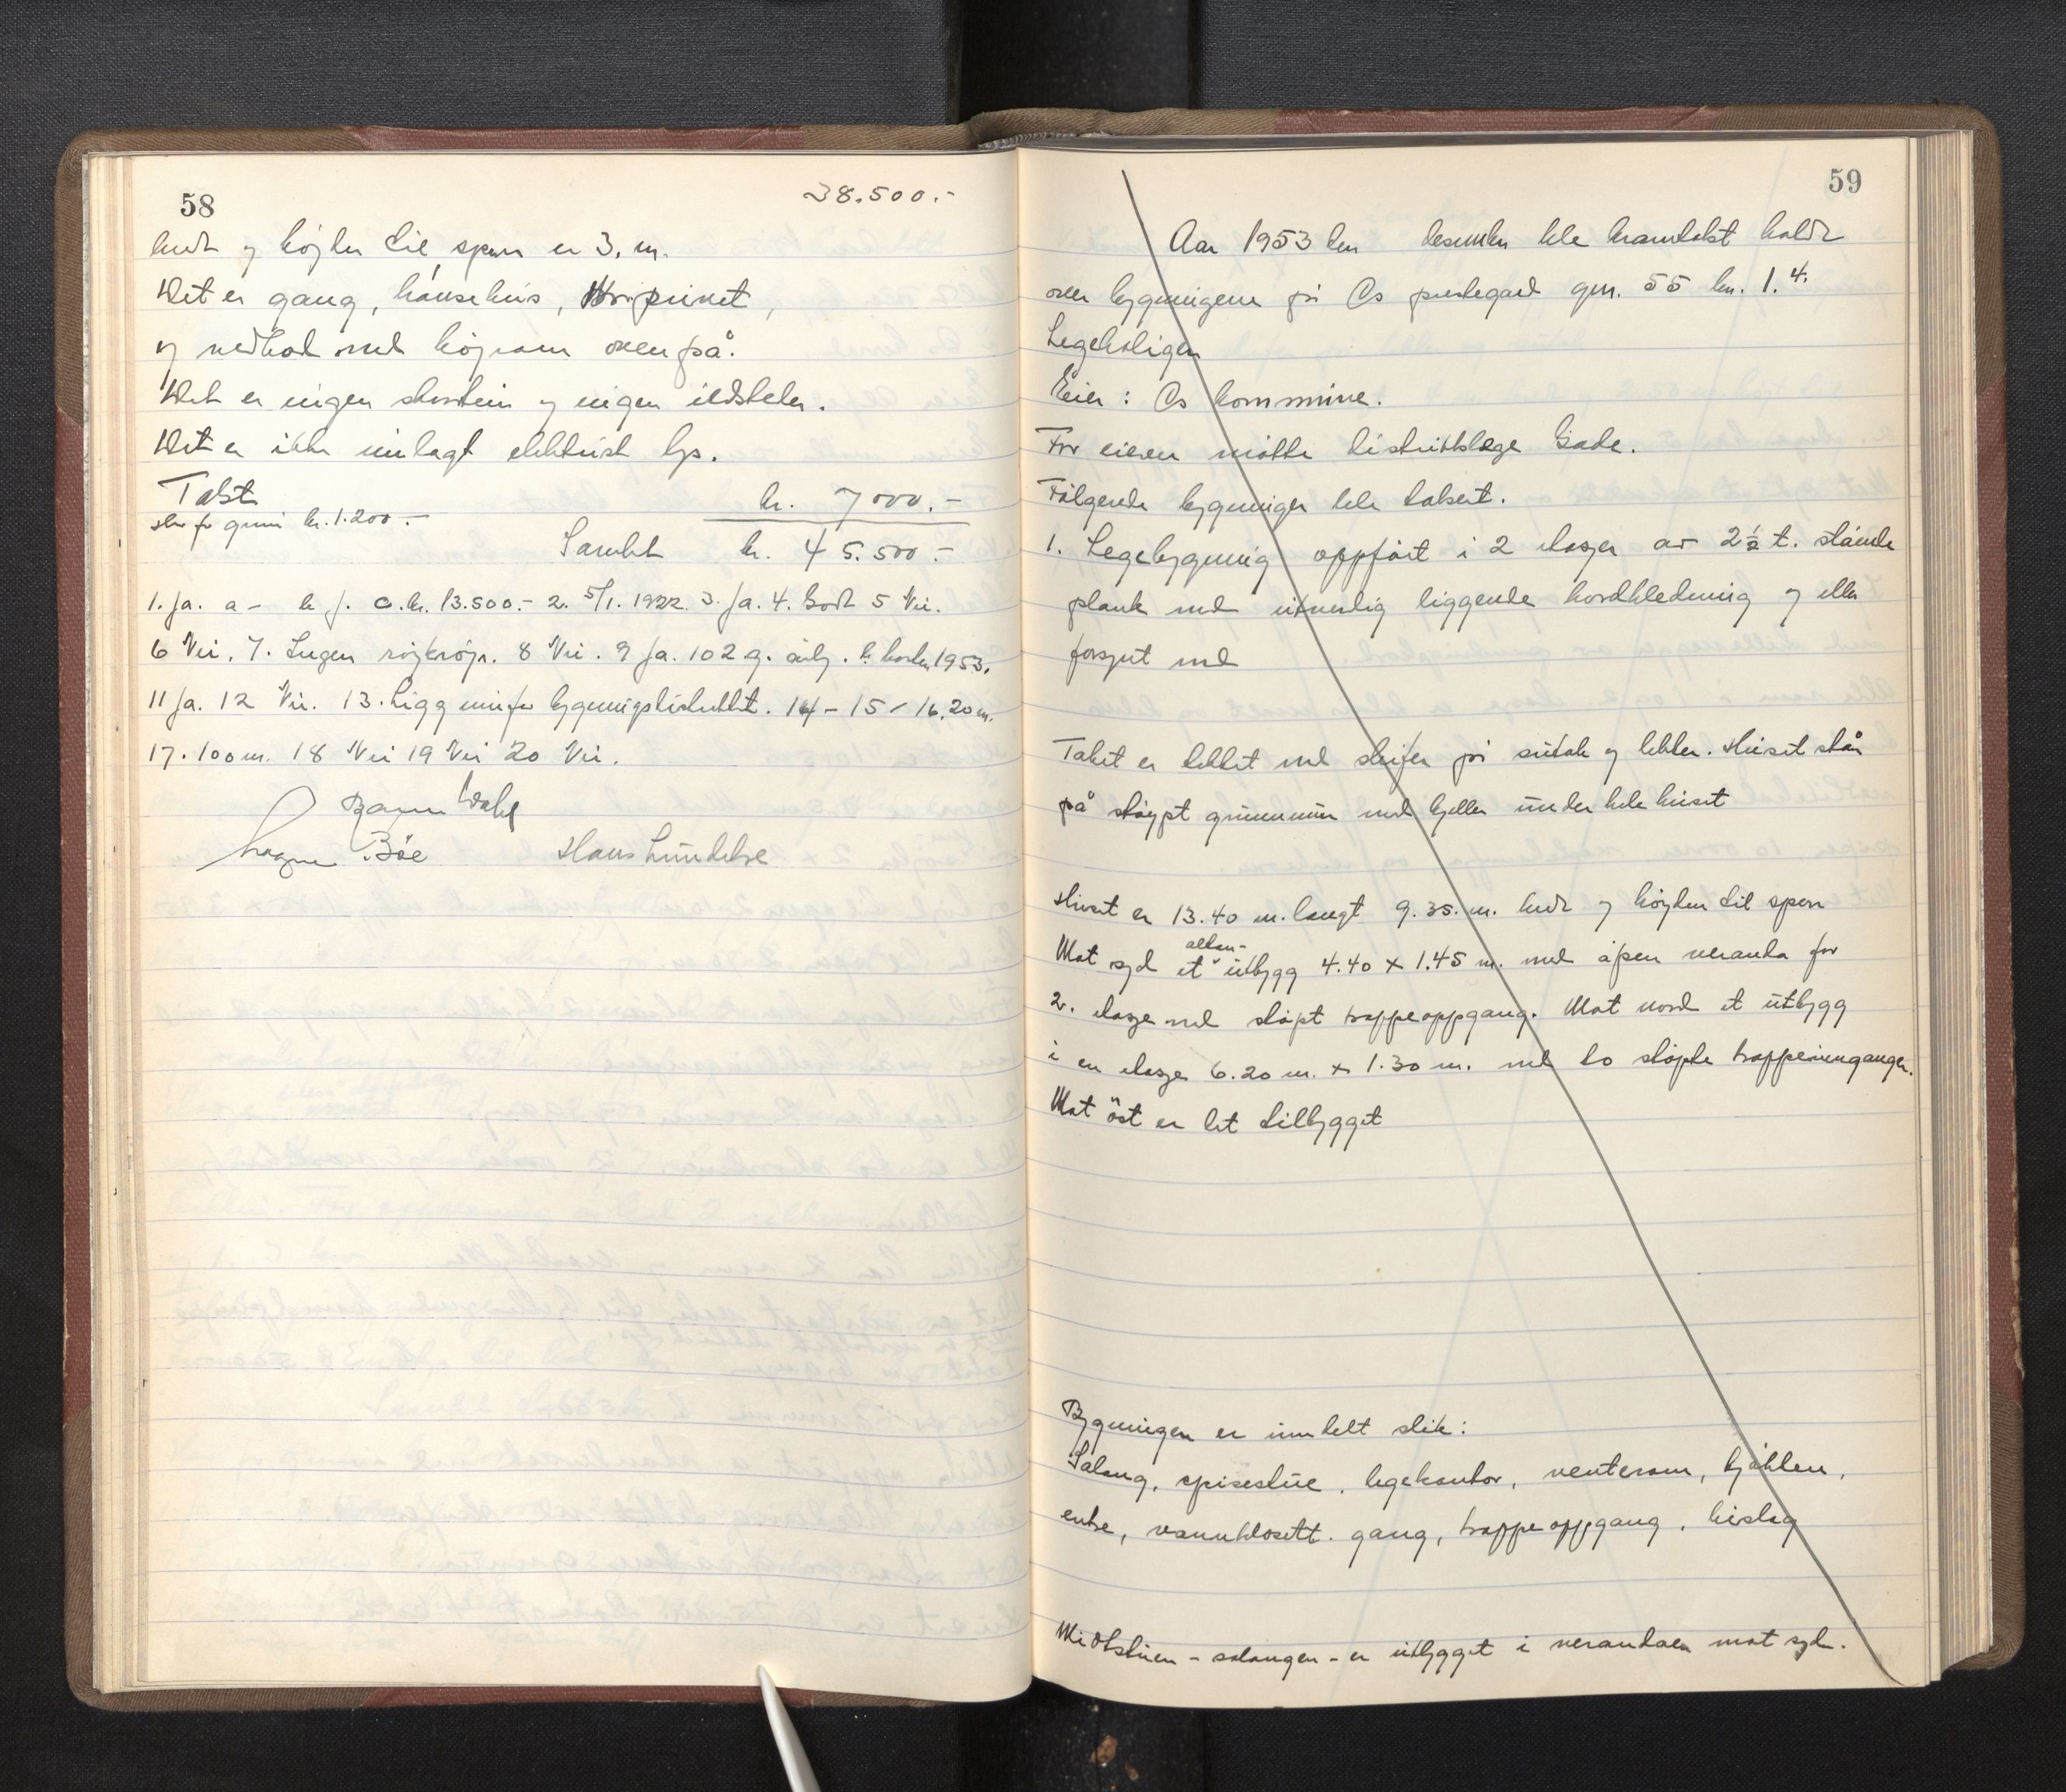 58
38.500.-
bredt og höjden til sperr er 3. m.
Det er gang, hönsehus, grisehus,
og vedbod med höyrom ovenpå.
Det er ingen skorstein og ingen ildsteder.
Det er ikke innlagt elektrisk lys.
Takst kr. 7000.-
herav for grunn kr. 1.200.-
Samlet kr. 45.500.-
1. Ja. a - b f. c. kr. 13.500.- 2. 5/1. 1922 3. Ja. 4. Godt 5 Nei.
6 Nei. 7. Ingen 8 Nei. 9 Ja. 10 2 g. årlig. 1953.
11 Ja. 12 Nei. 13. Ligg innenfor bygningsdistriktet. 14 - 15 - 16. 20 m.
17. 100 m. 18 Nei 19 Nei 20 Nei.
Dahl
Magne Böe Hans Lundetræ
59
Aar 1953 den desember ble branntakst holdt
over bygningene på Os prestegard gnr. 55 bnr. 1.4.
Legeboligen
Eier: Os kommune.
For eieren møtte distriktslege Gade.
Fölgende bygninger ble taksert.
1. Legebygning oppfört i 2 etasjer av 2½ t. stående
plank med utvendig liggende bordkledning og ellers
forsynt med
Taket er tekket med skifer på sutak og lekter. Huset står
på støypt grunnmur med kjeller under hele huset
Huset er 13.40 m. langt 9.35. m. bredt og höyden til sperr
Mot syd et altan- utbygg 4.40 x 1.45 m. med åpen veranda for
2. etasje med støpt trappeoppgang. Mot nord et utbygg
i en etasje 6.20 m. x 1.30 m. med to støpte trappeinnganger.
Mot öst er det tilbygget
Bygningen er inndelt slik:
Salong, spisestue, legekontor, venterom, kjökken,
entre, vannklosett. gang, trappeoppgang,
Midtstuen - salongen - er utbygget i verandaen mot syd.